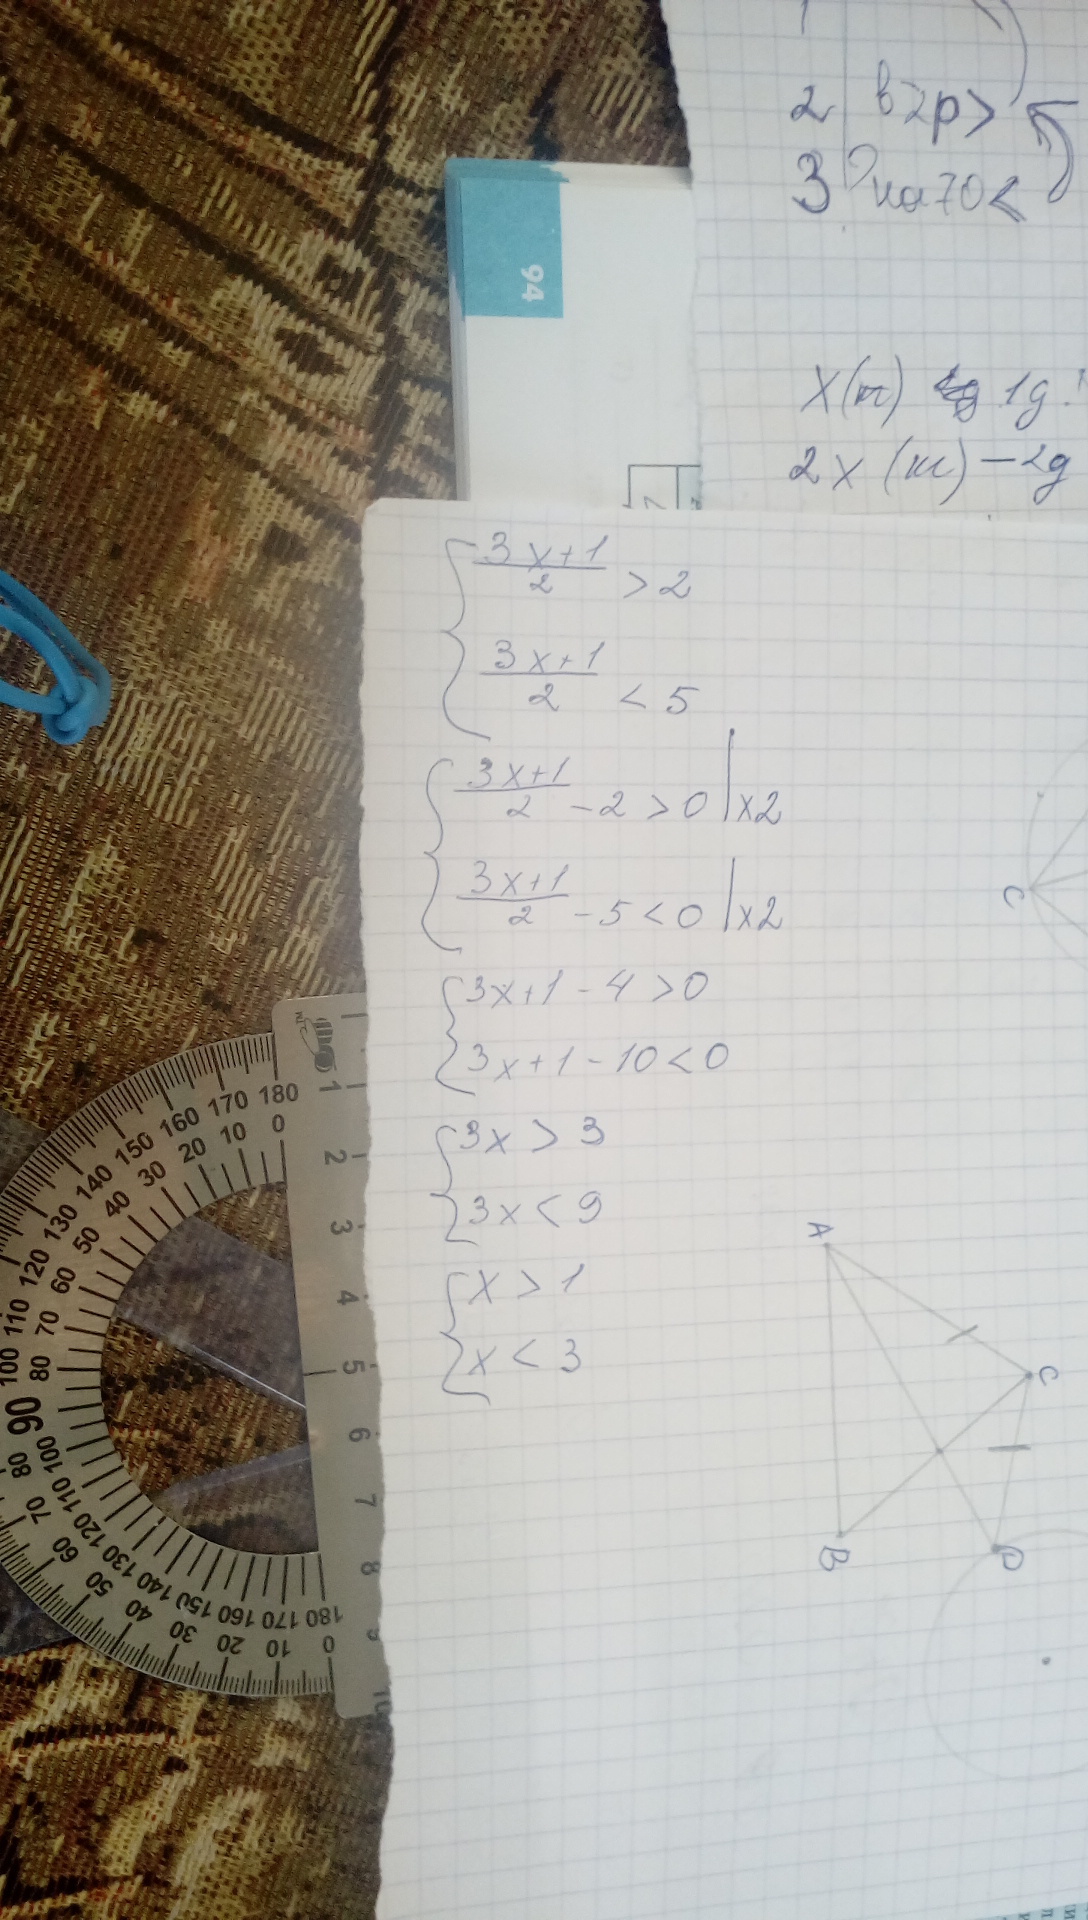 2 в 2р >
3 ? на 70 <
94
x(m) 1g
2x (m) - 2g
3x+1
2 > 2
3x+1
2 < 5
3x+1
2 - 2 > 0 | x2
3x+1
2 - 5 < 0 | x2
3x+1 - 4 > 0
3x+1 - 10 < 0
3x > 3
3x < 9
x > 1
x < 3
C
A
C
B
D
1 2 3 4 5 6 7 8 9 10
180 170 160 150 140 130 120 110 100 90 80 70 60 50 40 30 20 10 0
0 10 20 30 40 50 60 70 80 100 110 120 130 140 150 160 170 180